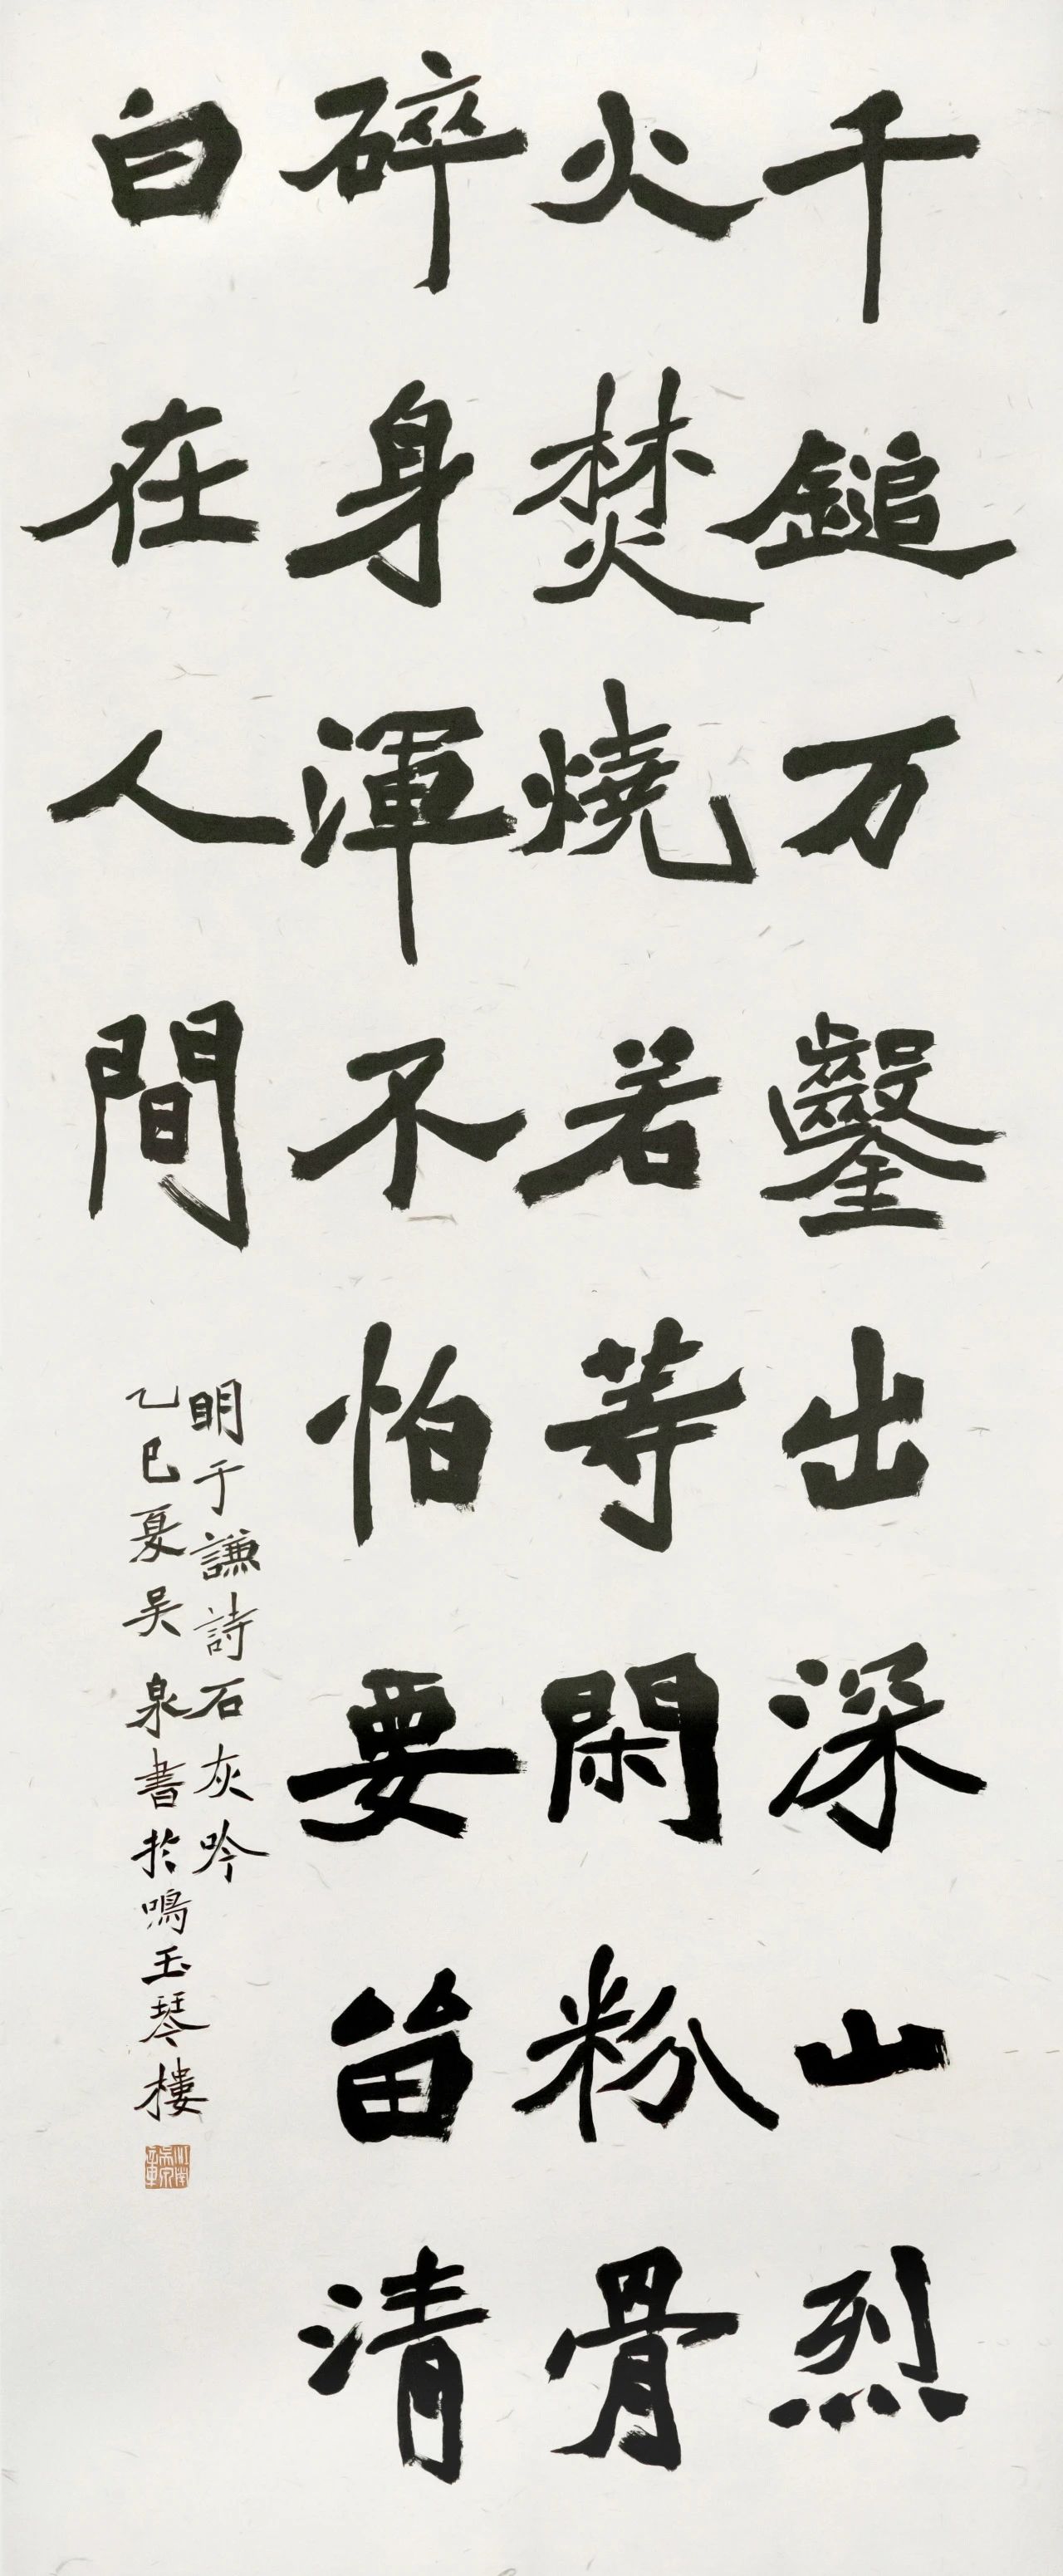 千鎚万鑿出深山烈
火焚燒若等閑粉骨
碎身渾不怕要留清
白在人間
明于謙詩石灰吟
乙巳夏吴泉書於鳴玉琴樓